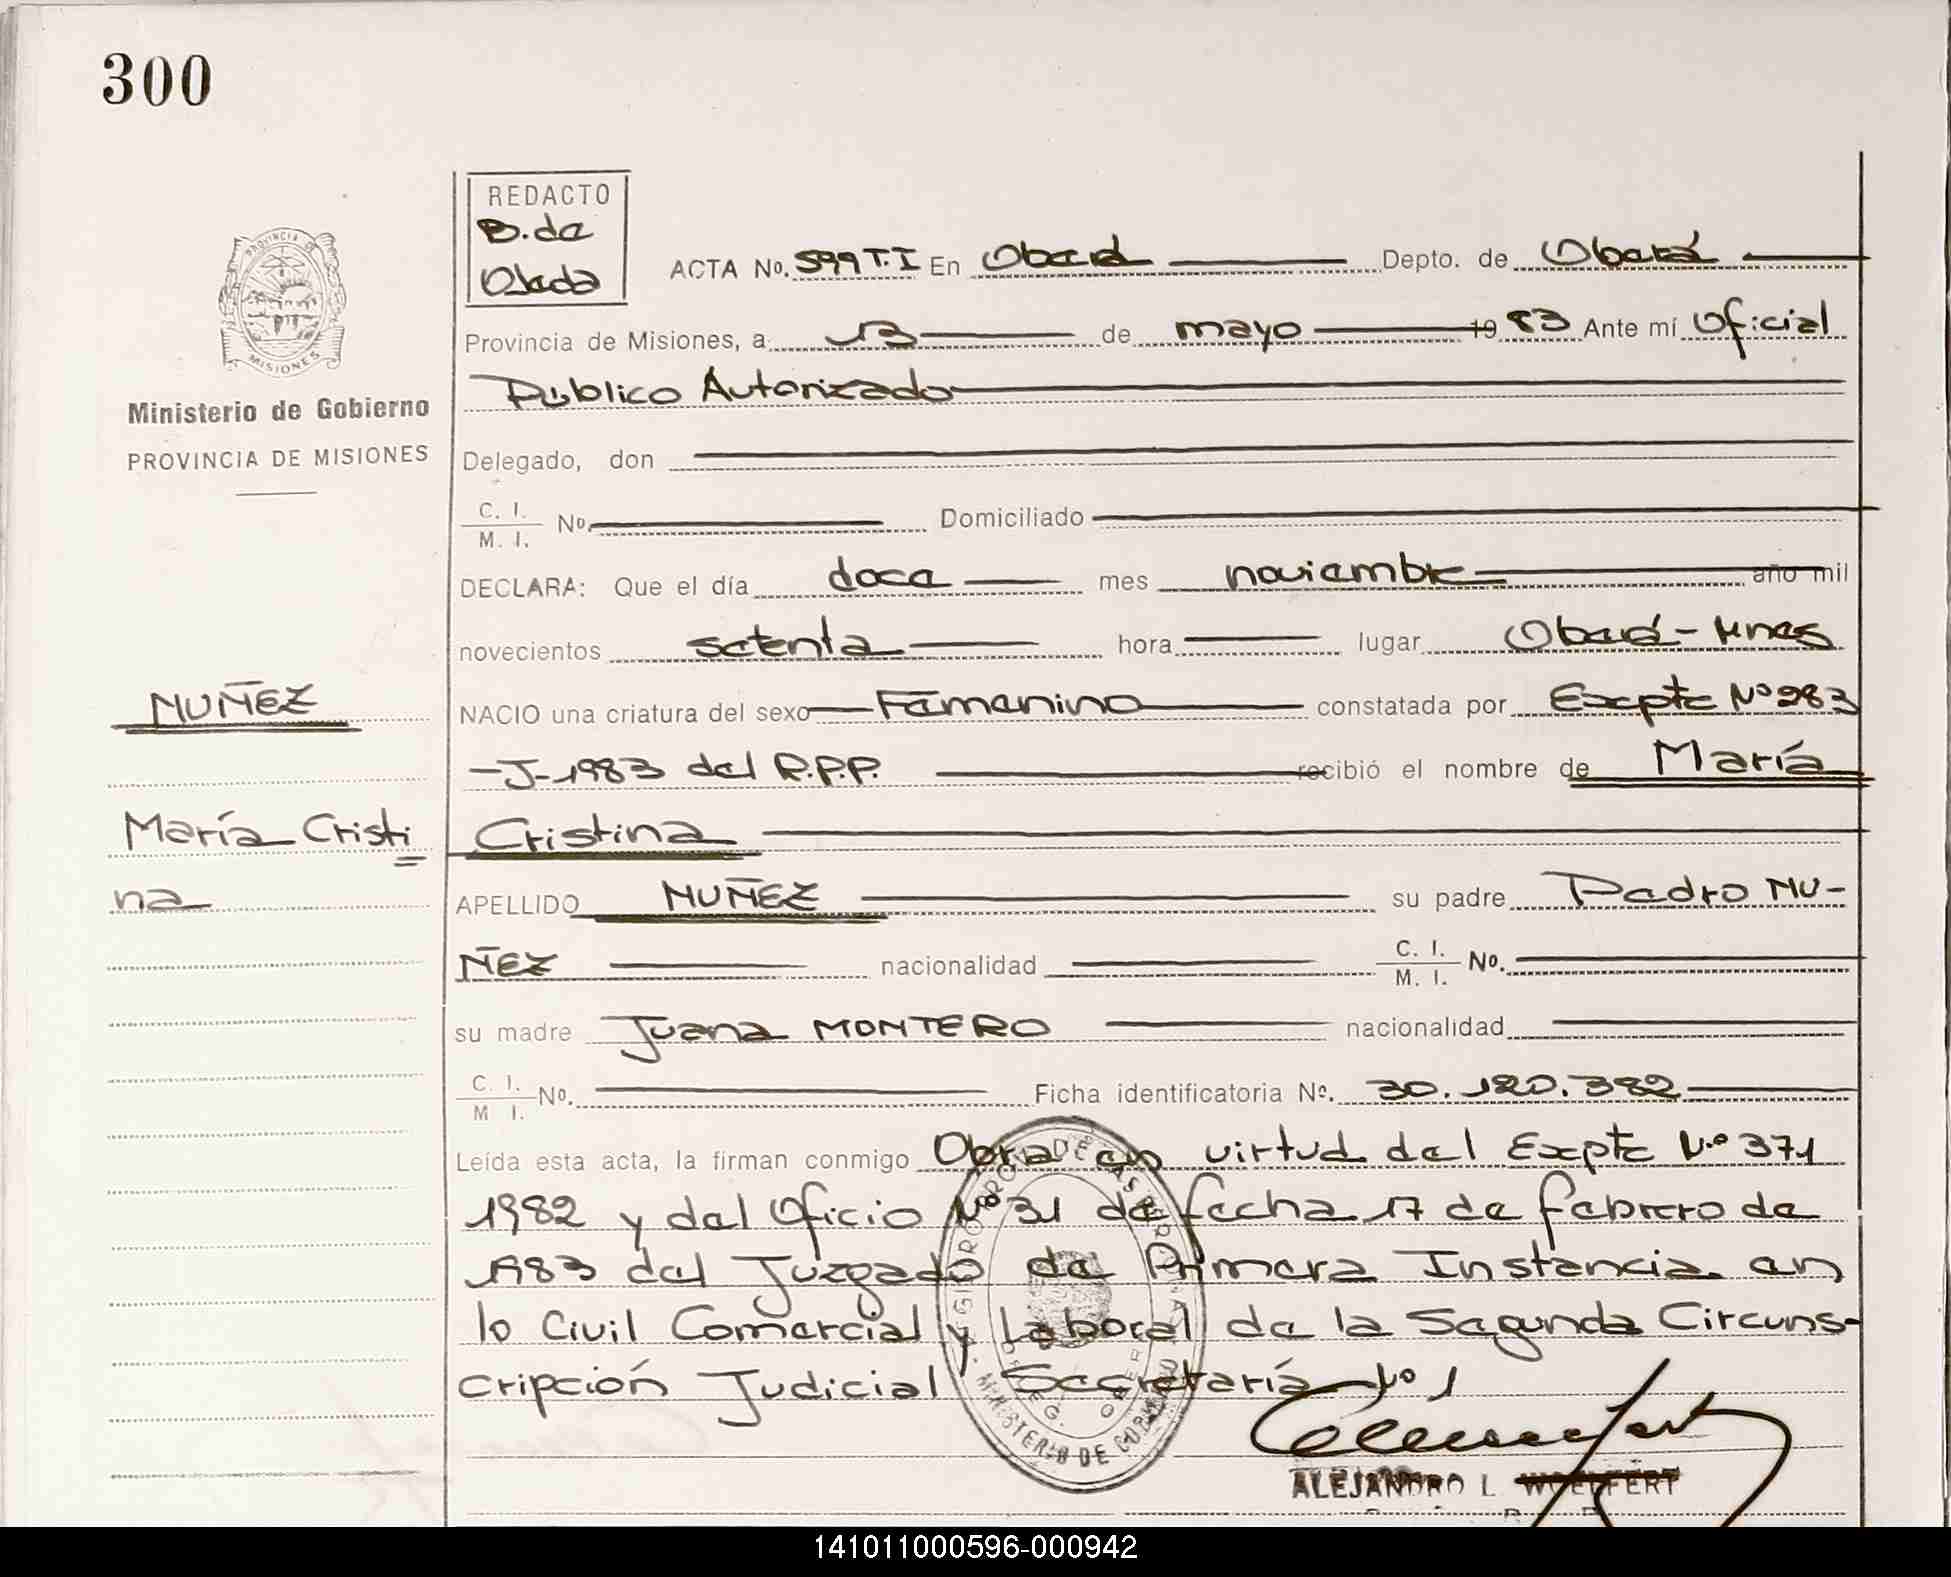 300
REDACTO
B. de
Ojeda
ACTA No. 599 T.I En Oberá Depto. de Oberá
PROVINCIA DE
MISIONES
Provincia de Misiones, a 13 de mayo 1983 Ante mí Oficial
Público Autorizado
Ministerio de Gobierno
PROVINCIA DE MISIONES
Delegado, don
C. I.
M. I. No. Domiciliado
DECLARA: Que el día doce mes noviembre año mil
novecientos setenta hora lugar Oberá - Mnes
NUÑEZ
NACIO una criatura del sexo Femenino constatada por Expte Nº 283
-J-1983 del R.P.P. recibió el nombre de María
María Cristi
Cristina
na
APELLIDO NUÑEZ su padre Pedro NU-
ÑEZ nacionalidad C. I.
M. I. No.
su madre Juana MONTERO nacionalidad
C. I.
M I. No. Ficha identificatoria No. 30.120.382
Leída esta acta, la firman conmigo Obra en virtud del Expte Nº 371
1982 y del Oficio Nº 31 de fecha 17 de febrero de
1983 del Juzgado de Primera Instancia en
lo Civil Comercial y Laboral de la Segunda Circuns-
cripción Judicial Secretaría Nº 1
MINISTERIO DE GOBIERNO
ALEJANDRO L. WOELFERT
141011000596-000942